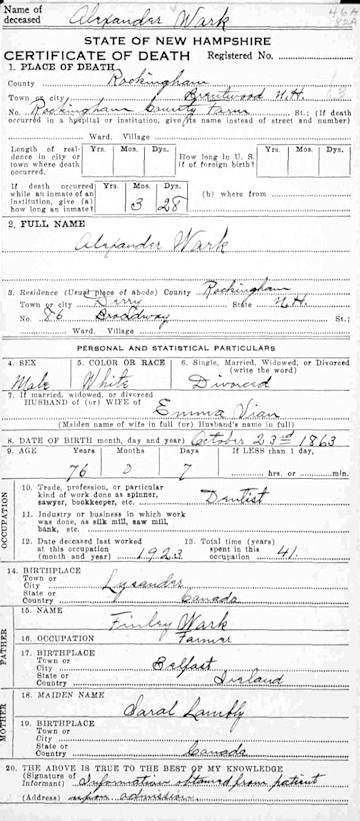 Name of
deceased Alexander Wark
STATE OF NEW HAMPSHIRE
CERTIFICATE OF DEATH Registered No.
1. PLACE OF DEATH
County Rockingham
Town or city Brentwood N.H.
No. Rockingham County Farm St.; (If death
occurred in a hospital or institution, give its name instead of street and number)
Ward. Village
Length of resi- Yrs. Mos. Days How long in U. S. Yrs. Mos. Days
dence in city or if of foreign birth?
town where death
occurred.
If death occurred Yrs. Mos. Days (b) where from
while an inmate of an
institution, give (a)
how long an inmate? 3 28
2. FULL NAME
Alexander Wark
3. Residence (Usual place of abode) County Rockingham
Town or city Derry State N.H.
No. 86 Broadway St.;
Ward. Village
PERSONAL AND STATISTICAL PARTICULARS
4. SEX 5. COLOR OR RACE 6. Single, Married, Widowed, or Divorced
(write the word)
Male White Divorced
7. If married, widowed, or divorced
HUSBAND of (or) WIFE of Emma Vian
(Maiden name of wife in full (or) Husband's name in full)
8. DATE OF BIRTH month, day and year) October 23rd 1863
9. AGE Years Months Days If LESS than 1 day,
76 2 7 hrs. or min.
OCCUPATION
10. Trade, profession, or particular
kind of work done as spinner,
sawyer, bookkeeper, etc. Dentist
11. Industry or business in which work
was done, as silk mill, saw mill,
bank, etc.
12. Date deceased last worked 13. Total time (years)
at this occupation spent in this
(month and year) 1923 occupation 41.
14. BIRTHPLACE
Town or
City Lysander
State or
Country Canada
FATHER
15. NAME
Finley Wark
16. OCCUPATION Farmer
17. BIRTHPLACE
Town or
City Belfast
State or
Country Ireland
MOTHER
18. MAIDEN NAME
Saral Lambly
19. BIRTHPLACE
Town or
City
State or
Country Canada
20. THE ABOVE IS TRUE TO THE BEST OF MY KNOWLEDGE
(Signature of
Informant) Information obtained from patient
(Address) upon admission.